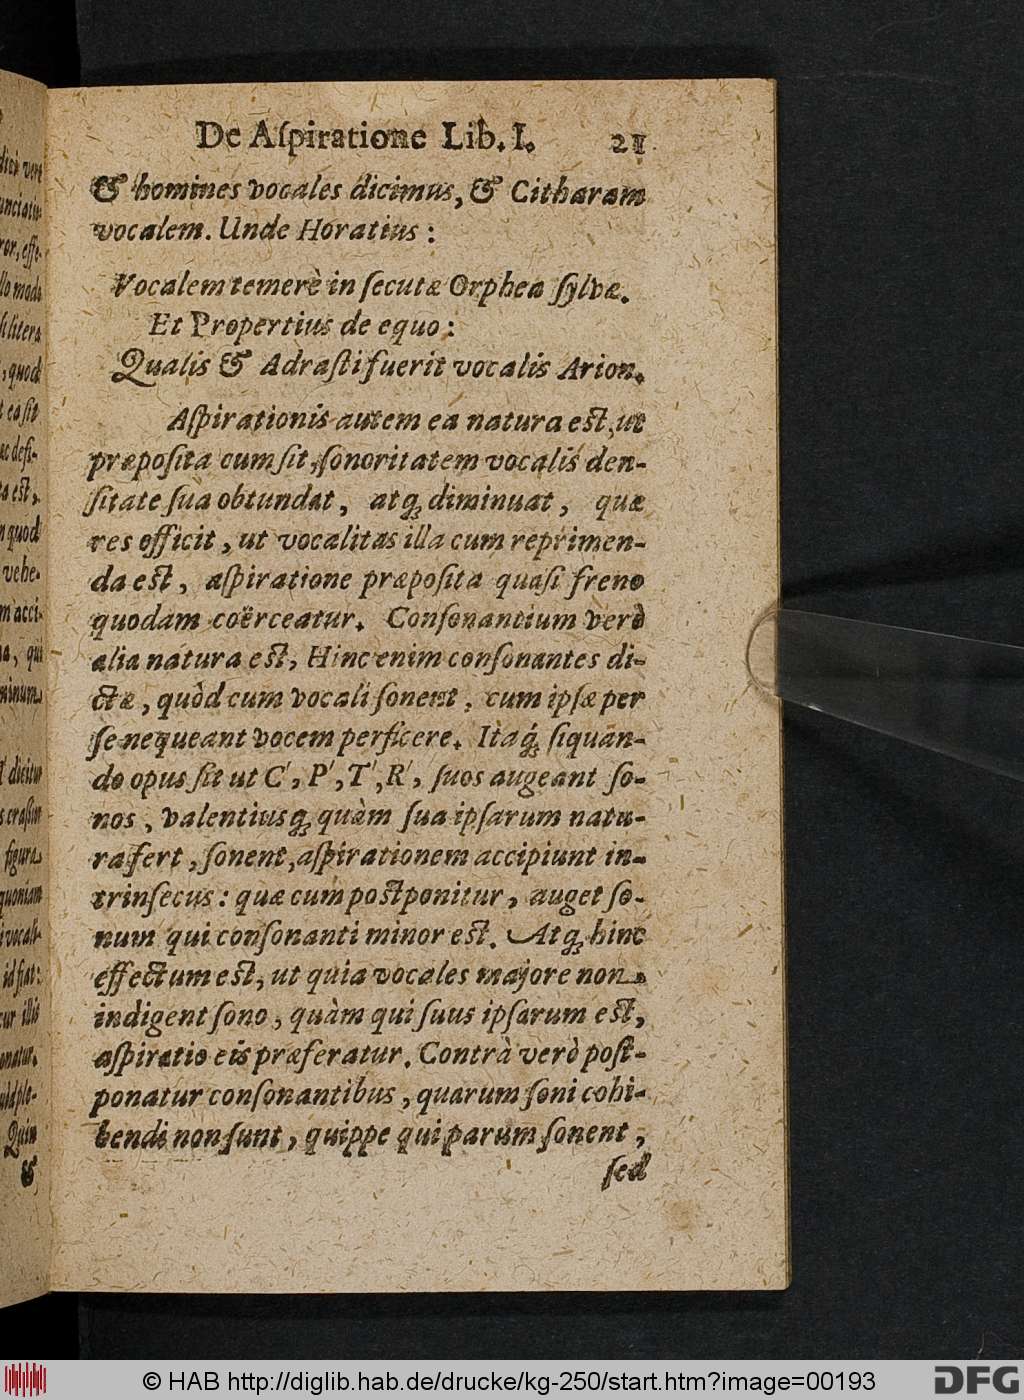 De Aſpiratione Lib. I. 21
& homines vocales dicimus, & Citharam
vocalem. Unde Horatius:
Vocalem temerè in ſecutæ Orphea ſylvæ.
Et Propertius de equo:
Qualis & Adraſti fuerit vocalis Arion.
Aſpirationis autem ea natura eſt, ut
præpoſita cum ſit, ſonoritatem vocalis den-
ſitate ſua obtundat, atq; diminuat, quæ
res efficit, ut vocalitas illa cum reprimen-
da eſt, aſpiratione præpoſita quaſi freno
quodam coërceatur. Conſonantium verò
alia natura eſt, Hinc enim conſonantes di-
ctæ, quòd cum vocali ſonent, cum ipſæ per
ſe nequeant vocem perficere. Itaq́; ſiquan-
do opus ſit ut C', P', T', R', ſuos augeant ſo-
nos, valentiusq; quàm ſua ipſarum natu-
ra fert, ſonent, aſpirationem accipiunt in-
trinſecus: quæ cum poſtponitur, auget ſo-
num qui conſonanti minor eſt. Atq; hinc
effectum eſt, ut quia vocales majore non
indigent ſono, quàm qui ſuus ipſarum eſt,
aſpiratio eis præferatur. Contrà verò poſt-
ponatur conſonantibus, quarum ſoni cohi-
bendi non ſunt, quippe qui parum ſonent,
ſed
© HAB http://diglib.hab.de/drucke/kg-250/start.htm?image=00193
DFG